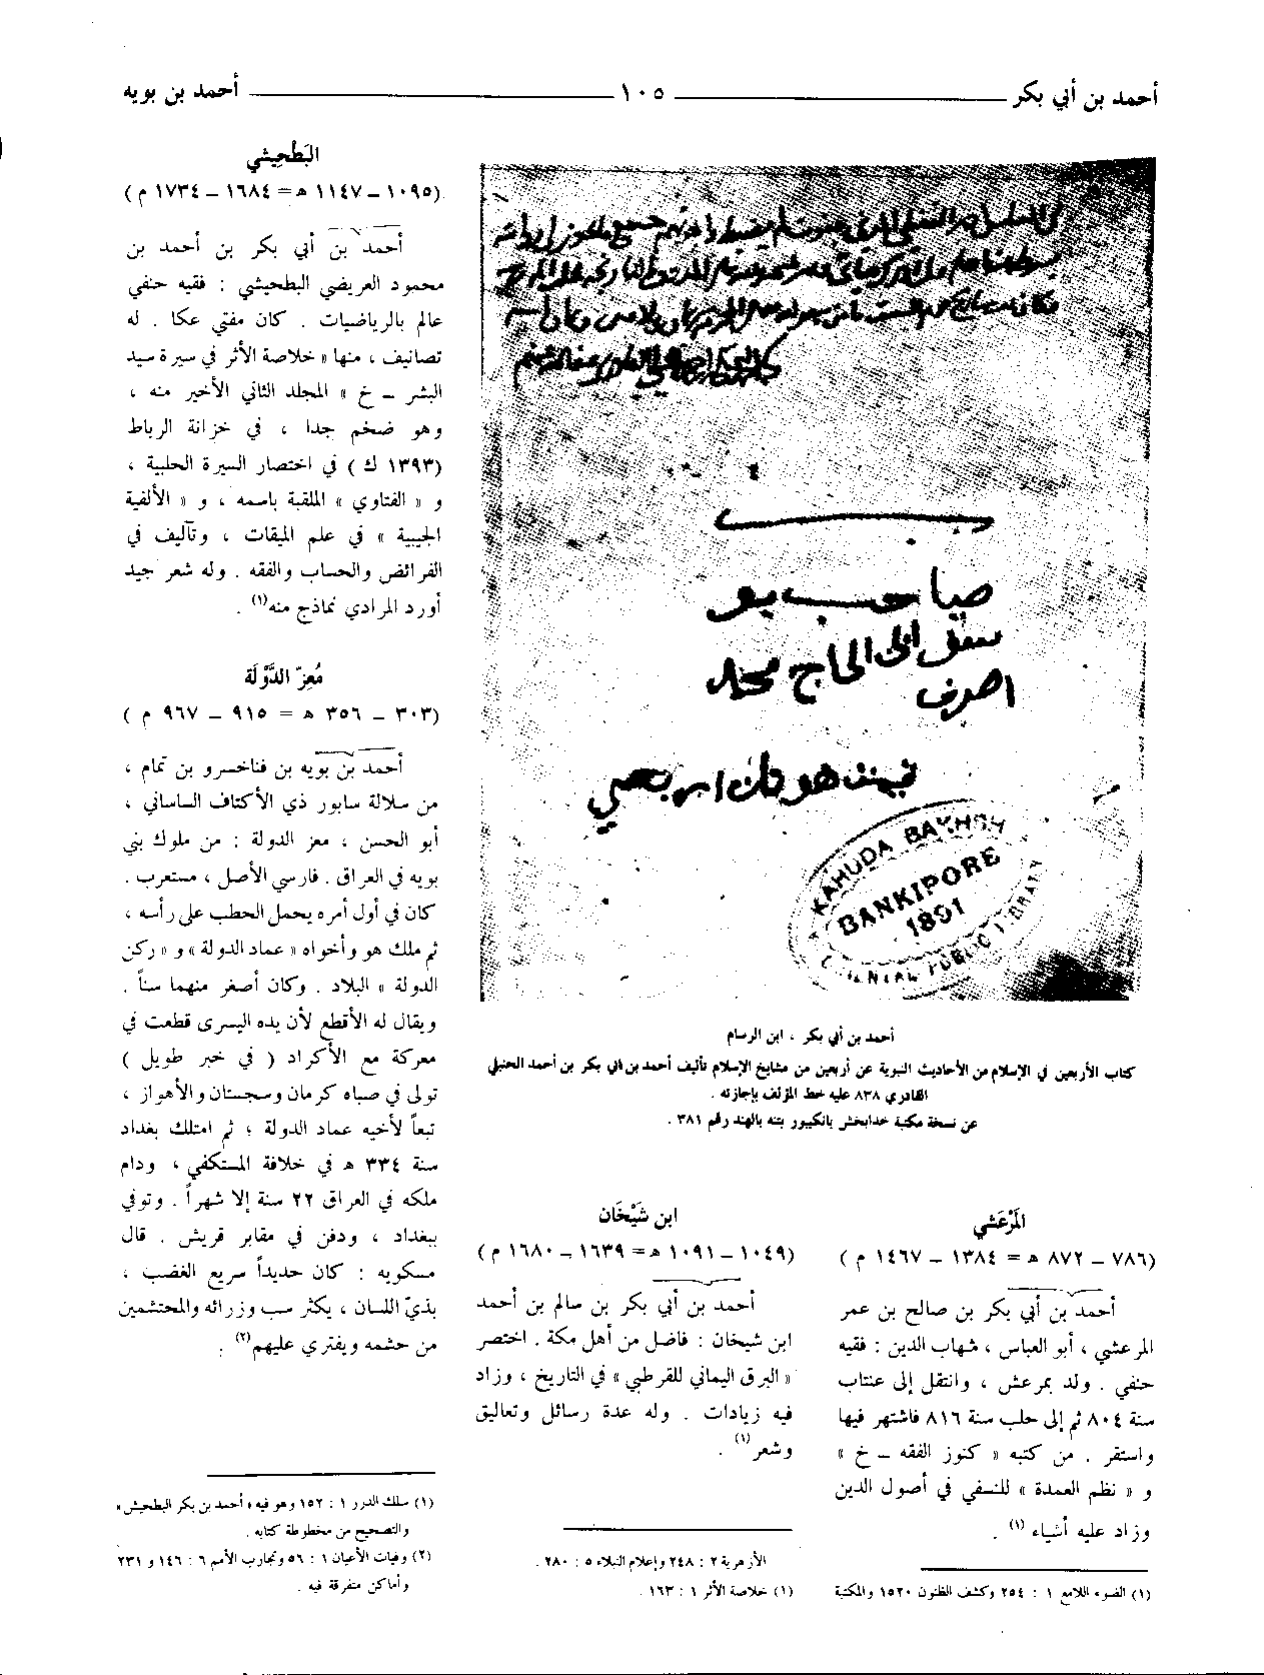 أحمد بن أبي بكر ١٠٥ أحمد بن بويه
صاحب
الحاج محمد
KAHUDA BAKHSH
BANKIPORE
1891
PUBLIC LIBRARY
أحمد بن أبي بكر ، ابن الرسام
كتاب الأربعين في الإسلام من الأحاديث النبوية عن أربعين من مشايخ الإسلام تأليف أحمد بن أبي بكر بن أحمد الحنبلي
القادري ٨٣٨ عليه خط المؤلف بإجازته .
عن نسخة مكتبة خدابخش بانكيبور بتنه بالهند رقم ٣٨١ .
المَرْعَشي
(٧٨٦ – ٨٧٢ ه = ١٣٨٤ – ١٤٦٧ م )
أحمد بن أبي بكر بن صالح بن عمر
المرعشي ، أبو العباس ، شهاب الدين : فقيه
حنفي . ولد بمرعش ، وانتقل إلى عنتاب
سنة ٨٠٤ ثم إلى حلب سنة ٨١٦ فاشتهر فيها
واستقر . من كتبه « كنوز الفقه – خ »
و « نظم العمدة » للنسفي في أصول الدين
وزاد عليه أشياء (١) .
(١) الضوء اللامع ١ : ٢٥٤ وكشف الظنون ١٥٢٠ والمكتبة
ابن شَيْخَان
(١٠٤٩ – ١٠٩١ ه = ١٦٣٩ – ١٦٨٠ م )
أحمد بن أبي بكر بن سالم بن أحمد
ابن شيخان : فاضل من أهل مكة . اختصر
« البرق اليماني للقرطبي » في التاريخ ، وزاد
فيه زيادات . وله عدة رسائل وتعاليق
وشعر (١) .
الأزهرية ٢ : ٢٤٨ وإعلام النبلاء ٥ : ٢٨٠ .
(١) خلاصة الأثر ١ : ١٦٣ .
البَطْحِيشي
(١٠٩٥ – ١١٤٧ ه = ١٦٨٤ – ١٧٣٤ م )
أحمد بن أبي بكر بن أحمد بن
محمود العريضي البطحيشي : فقيه حنفي
عالم بالرياضيات . كان مفتي عكا . له
تصانيف ، منها « خلاصة الأثر في سيرة سيد
البشر – خ » المجلد الثاني الأخير منه ،
وهو ضخم جدا ، في خزانة الرباط
(١٣٩٣ ك ) في اختصار السيرة الحلبية ،
و « الفتاوي » الملقبة باسمه ، و « الألفية
الجيبية » في علم الميقات ، وتآليف في
الفرائض والحساب والفقه . وله شعر جيد
أورد المرادي نماذج منه (١) .
مُعِزّ الدَّوْلَة
(٣٠٣ – ٣٥٦ ه = ٩١٥ – ٩٦٧ م )
أحمد بن بويه بن فناخسرو بن تمام ،
من سلالة سابور ذي الأكتاف الساساني ،
أبو الحسن ، معز الدولة : من ملوك بني
بويه في العراق . فارسي الأصل ، مستعرب .
كان في أول أمره يحمل الحطب على رأسه ،
ثم ملك هو وأخواه « عماد الدولة » و « ركن
الدولة » البلاد . وكان أصغر منهما سناً .
ويقال له الأقطع لأن يده اليسرى قطعت في
معركة مع الأكراد ( في خبر طويل )
تولى في صباه كرمان وسجستان والأهواز ،
تبعاً لأخيه عماد الدولة ؛ ثم امتلك بغداد
سنة ٣٣٤ ه في خلافة المستكفي ، ودام
ملكه في العراق ٢٢ سنة إلا شهراً . وتوفي
ببغداد ، ودفن في مقابر قريش . قال
مسكويه : كان حديداً سريع الغضب ،
بذيّ اللسان ، يكثر سب وزرائه والمحتشمين
من حشمه ويفتري عليهم (٢) .
(١) سلك الدرر ١ : ١٥٢ وهو فيه « أحمد بن بكر البطحيش »
والتصحيح من مخطوطة كتابه .
(٢) وفيات الأعيان ١ : ٥٦ وتجارب الأمم ٦ : ١٤٦ و ٢٣١
وأماكن متفرقة فيه .